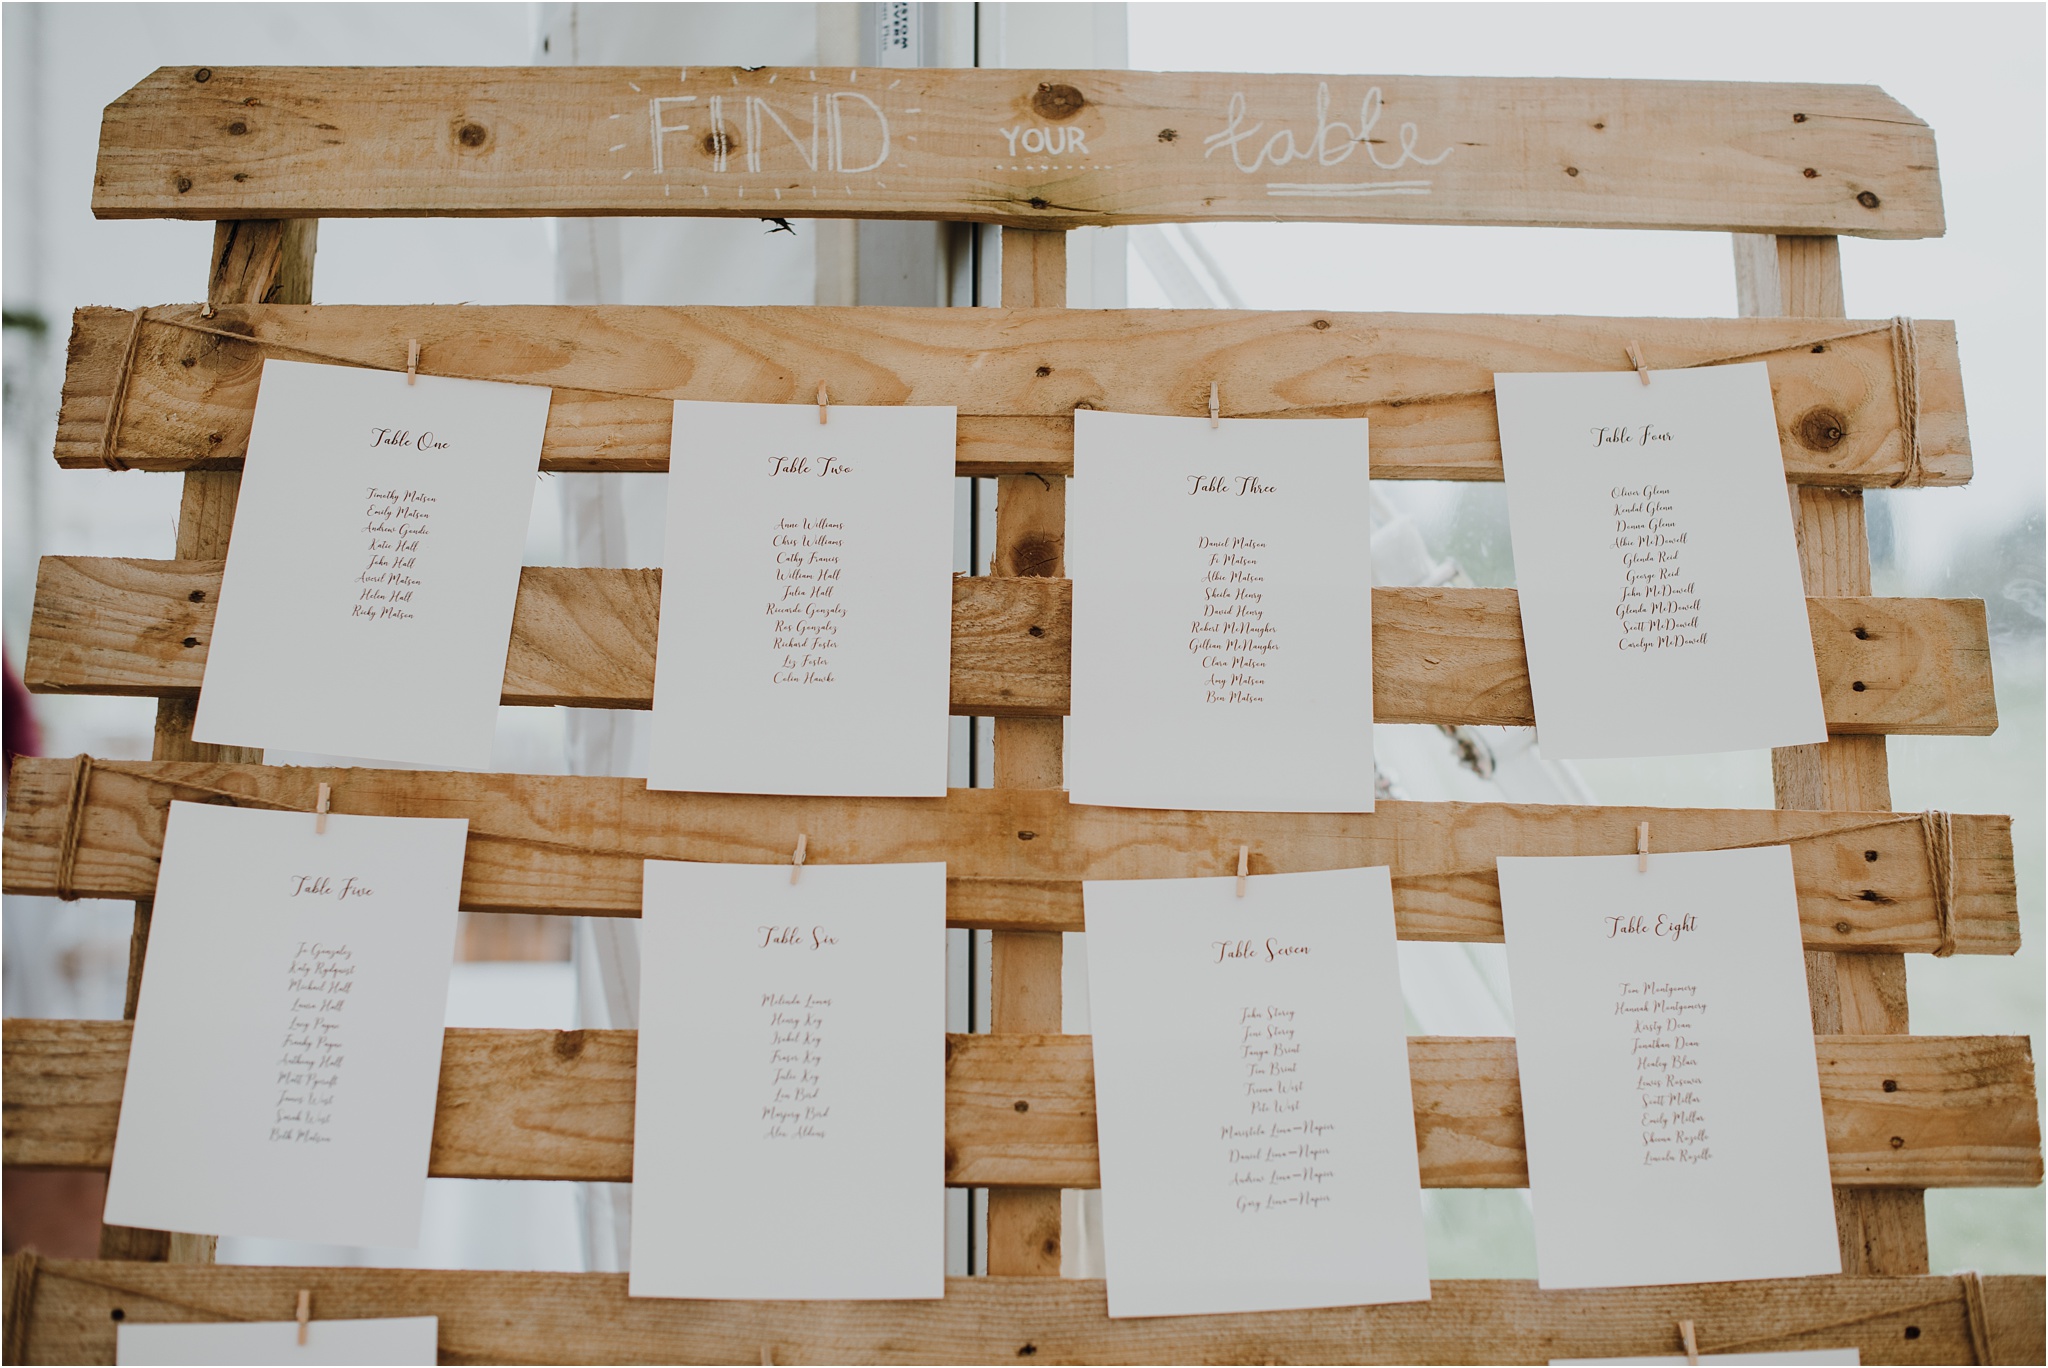 FIND YOUR table
Table One
Timothy Matson
Emily Matson
Andrew Goudie
Katie Hall
John Hall
Averil Matson
Helen Hall
Ricky Matson
Table Two
Anne Williams
Chris Williams
Cathy Francis
William Hall
Julia Hall
Riccardo Gonzalez
Ros Gonzalez
Richard Foster
Liz Foster
Colin Hawke
Table Three
Daniel Matson
Fe Matson
Albie Matson
Sheila Henry
David Henry
Robert McNaugher
Gillian McNaugher
Clara Matson
Amy Matson
Ben Matson
Table Four
Oliver Glenn
Kendal Glenn
Donna Glenn
Albie McDowell
Glenda Reid
George Reid
John McDowell
Glenda McDowell
Scott McDowell
Carolyn McDowell
Table Five
Jo Gonzalez
Katy Rydqvist
Michael Hall
Laura Hall
Lucy Payne
Franky Payne
Anthony Hall
Matt Pycroft
James West
Sarah West
Beth Matson
Table Six
Melinda Lomas
Henry Key
Isobel Key
Fraser Key
Julie Key
Len Bird
Margery Bird
Alex Aldous
Table Seven
John Storey
Joni Storey
Tanya Brient
Tim Brient
Triona West
Pete West
Maristela Lima-Napier
Daniel Lima-Napier
Andrew Lima-Napier
Gary Lima-Napier
Table Eight
Tom Montgomery
Hannah Montgomery
Kirsty Dean
Jonathan Dean
Healey Blair
Lewis
Scott Millar
Emily Millar
Shiona Razollo
Lincoln Razollo